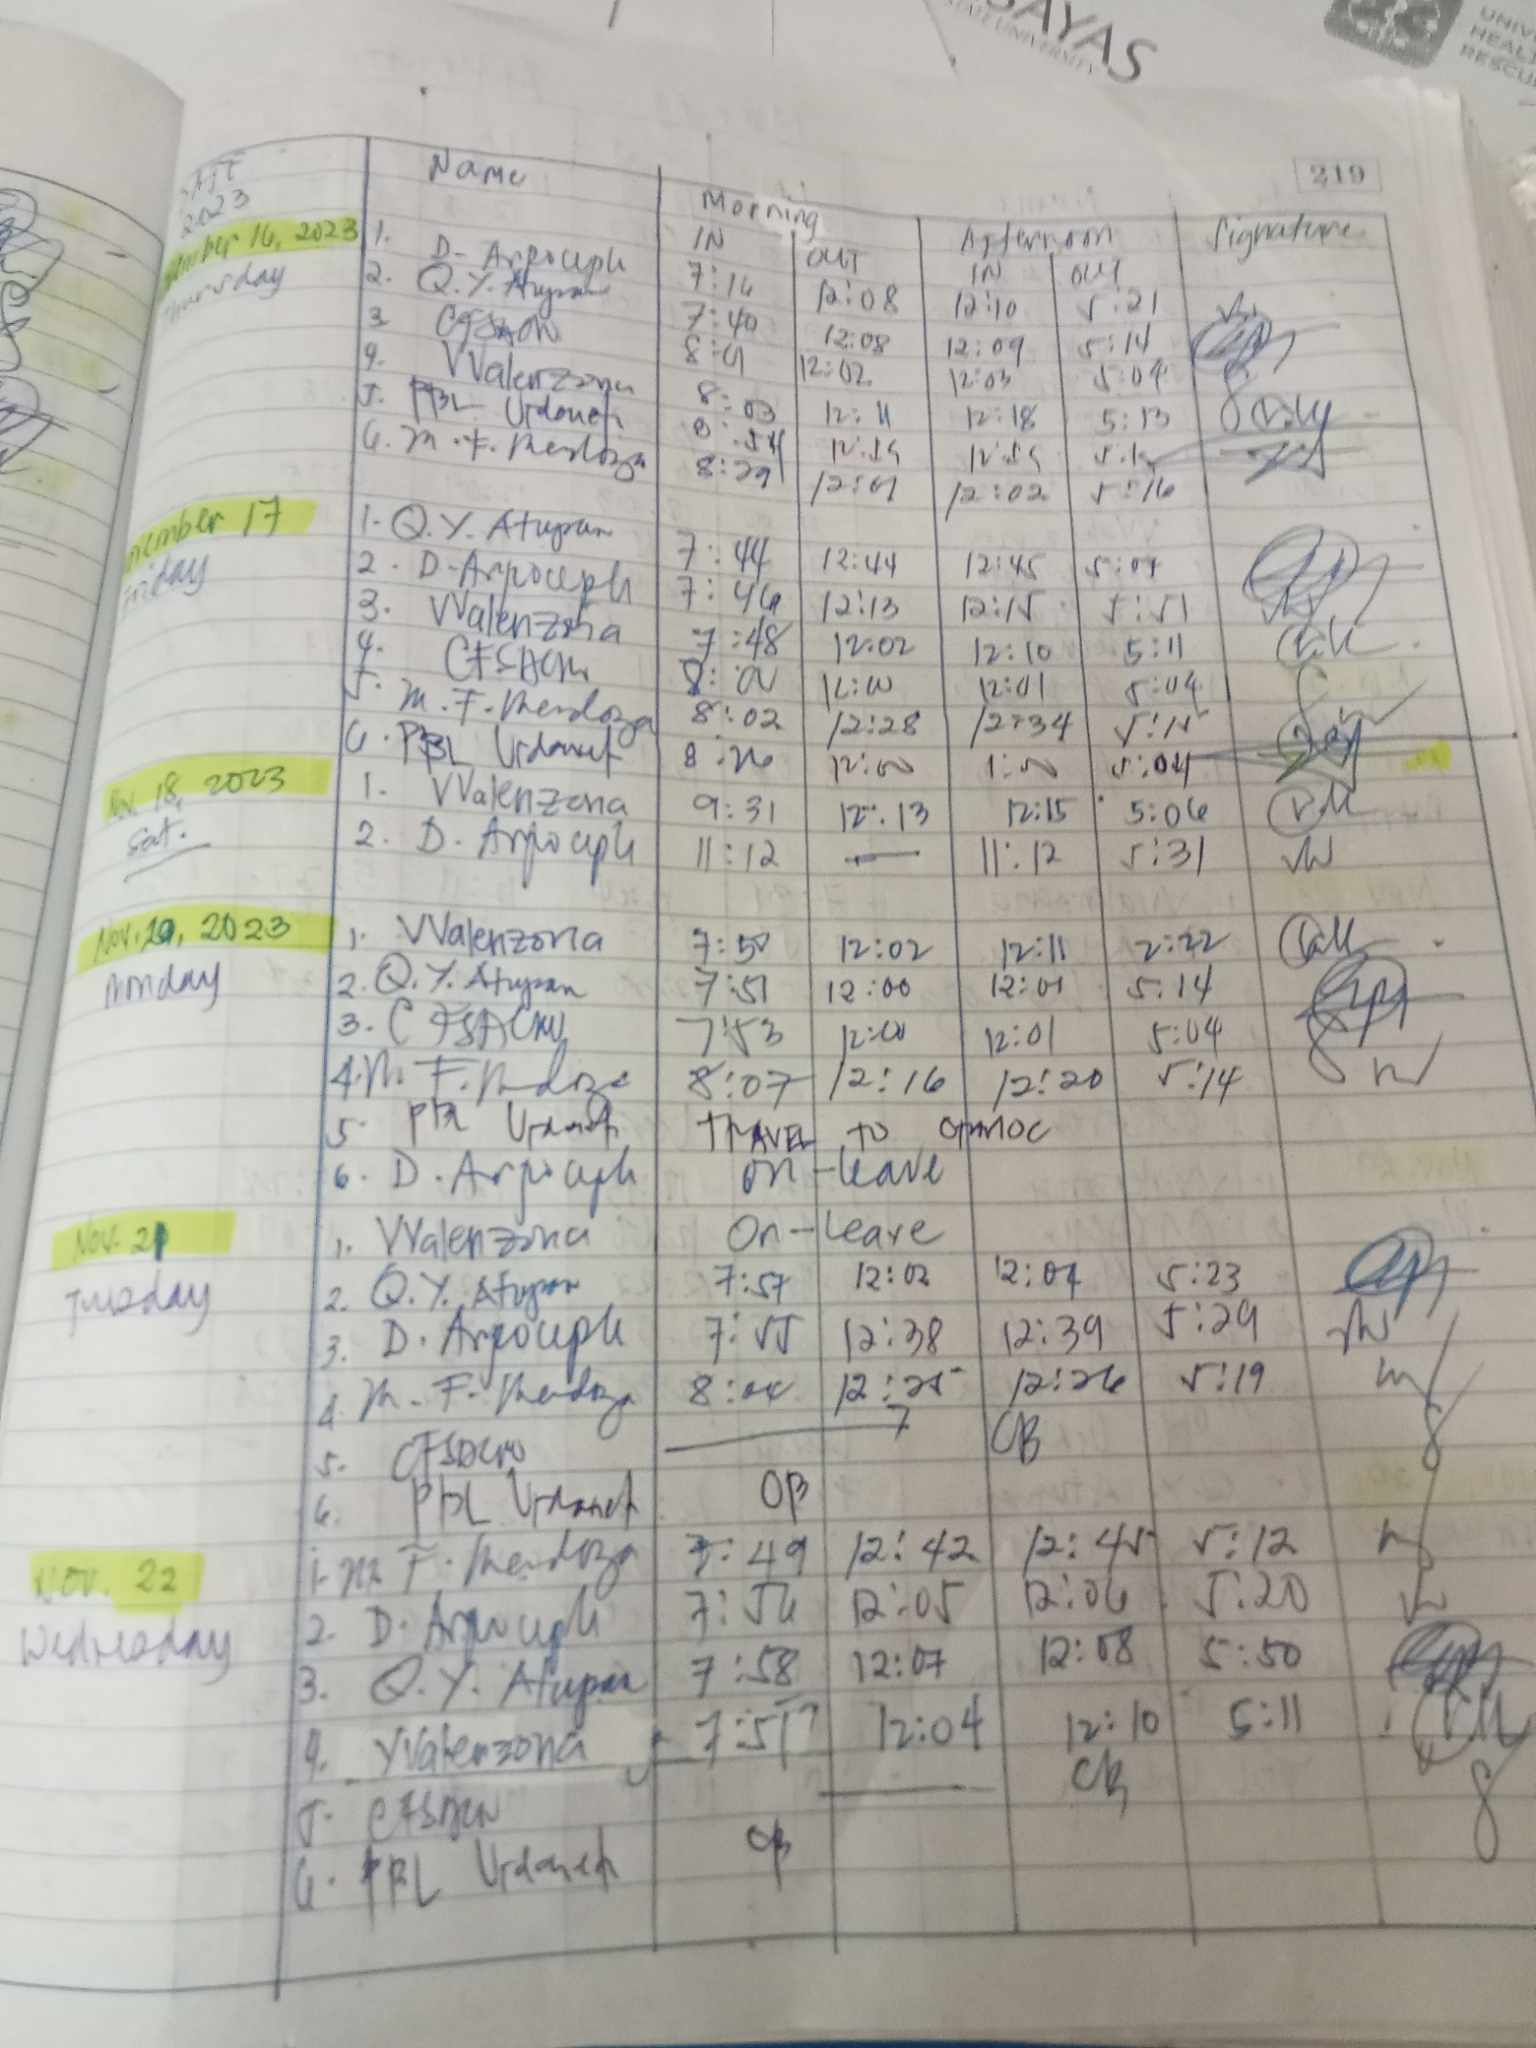 SAYAS
STATE UNIVERSITY
UNIV
HEAL
RESCU
219
2023 Name Morning Afternoon Signature
IN OUT IN OUT
ember 16, 2023 1. D. Arpoceple 7:16 12:08 12:10 5:21
Thursday 2. Q.Y. Atupan 7:40 12:08 12:09 5:14
3. 8:01 12:02 12:03 5:04
4. VValenzona 8:03 12:11 12:18 5:13
5. PBL Urdaneta
6. M. F. Mendoza 8:29 12:01 12:02 5:16
ember 17 1. Q.Y. Atupan 7:44 12:44 12:45
Friday 2. D. Arpoceple 7:46 12:13 12:15 5:51
3. VValenzona 7:48 12:02 12:10 5:11
4. 8:00 12:00 12:01 5:04
5. M. F. Mendoza 8:02 12:28 12:34 5:15
6. PBL Urdaneta 12:00 1:00 5:04
Nov. 18, 2023 1. VValenzona 9:31 12:13 12:15 5:06
Sat. 2. D. Arpoceple 11:12 — 11:12 5:31
Nov. 20, 2023 1. VValenzona 7:50 12:02 12:11 2:22
Monday 2. Q.Y. Atupan 7:51 12:00 12:01 5:14
3. 7:53 12:00 12:01 5:04
4. M. F. Mendoza 8:07 12:16 12:20 5:14
5. PBL Urdaneta TRAVEL TO ORMOC
6. D. Arpoceple on-leave
Nov. 21 1. VValenzona On-Leave
Tuesday 2. Q.Y. Atupan 7:57 12:02 12:04 5:23
3. D. Arpoceple 7:55 12:38 12:39 5:29
4. M. F. Mendoza 12:25 12:26 5:19
5.
6. PBL Urdaneta OB
Nov. 22 1. M. F. Mendoza 7:49 12:42 12:45 5:12
Wednesday 2. D. Arpoceple 7:56 12:05 12:06 5:20
3. Q.Y. Atupan 7:58 12:07 12:08 5:50
4. VValenzona 7:57 12:04 12:10 5:11
5.
6. PBL Urdaneta OB